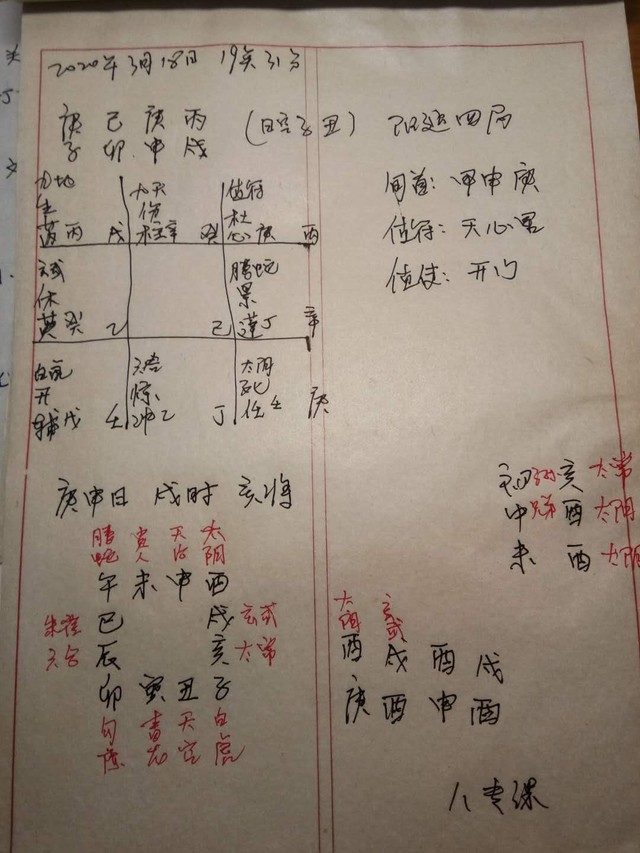 2020年3月18日 19点31分
庚己庚丙 (日空子丑) 阳遁四局
子卯申戌
旬首:甲申庚
值符:天心星
值使:开门
九地 九天 值符
生 伤 杜
芮丙 戊 柱辛 癸 心庚 丙
玄武 腾蛇
休 景
英癸 乙 己 蓬丁 辛
白虎 六合 太阴
开 惊 死
辅戊 壬 冲乙 丁 任壬 庚
庚申日 戌时 亥将
腾蛇 贵人 天后 太阴
午未申酉
朱雀 巳 戌 玄武
六合 辰 亥 太常
卯寅丑子
勾陈 青龙 天空 白虎
初 亥 太常
中 兄弟 酉 太阴
末 酉 太阴
太阴 玄武
酉戌酉戌
庚酉申酉
八专课